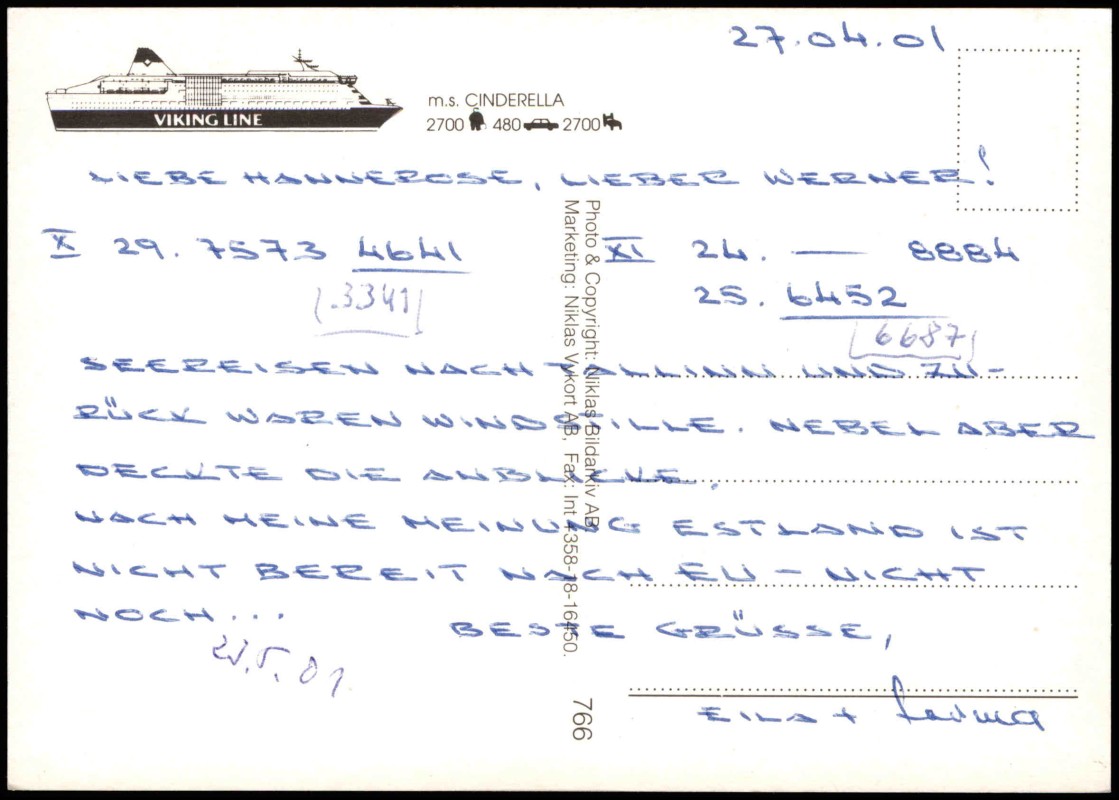 27.04.01
VIKING LINE
m.s. CINDERELLA
2700 480 2700
LIEBE HANNEROSE, LIEBER WERNER!
X 29. 7573 4641
3341
XI 24. — 8884
25. 6452
6687
SEEREISEN NACH TALLINN UND ZU-
RÜCK WAREN WINDSTILLE. NEBEL ABER
DECKTE DIE ANBLICKE.
NACH MEINE MEINUNG ESTLAND IST
NICHT BEREIT NACH EU – NICHT
NOCH...
BESTE GRÜSSE,
EILA +
.5.01
Photo & Copyright: Niklas Bildarkiv AB
Marketing: Niklas Vykort AB, Fax: Int +358-18-16450.
766